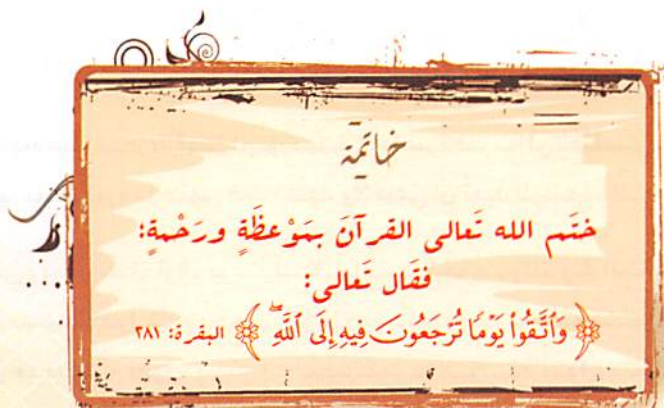 خاتمة
ختَم الله تَعالى القرآنَ بمَوْعظَةٍ ورَحْمةٍ:
فقَال تَعالى:
﴿ وَٱتَّقُوا۟ يَوْمًا تُرْجَعُونَ فِيهِ إِلَى ٱللَّهِ ۖ ﴾ البقَرة: ٢٨١